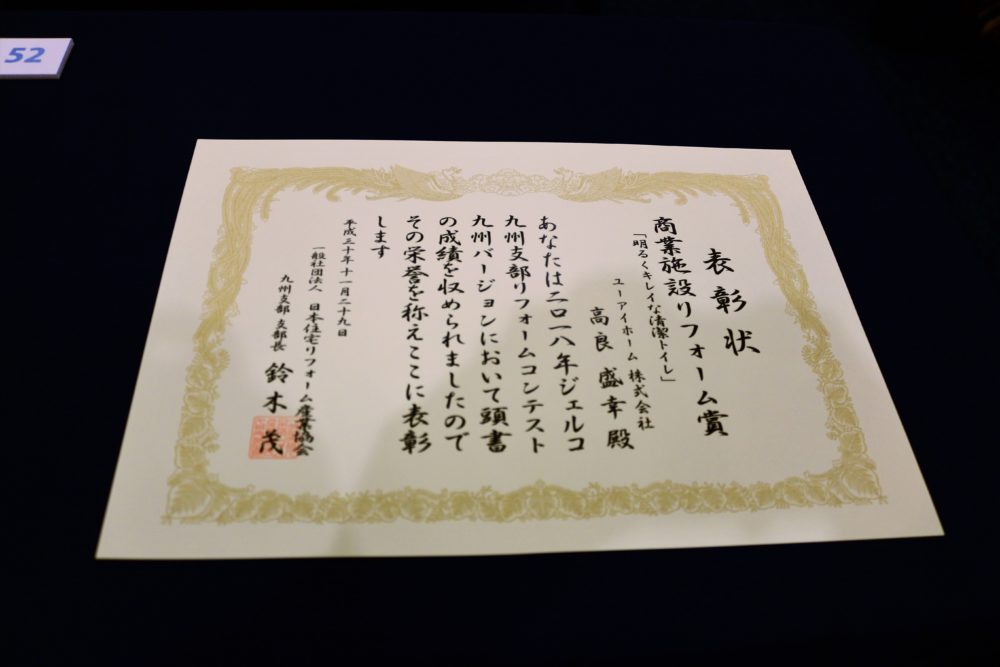 52
表彰状
商業施設リフォーム賞
「明るくキレイな清潔トイレ」
ユーアイホーム 株式会社
高良 盛幸 殿
あなたは二〇一八年ジェルコ
九州支部リフォームコンテスト
九州バージョンにおいて頭書
の成績を収められましたので
その栄誉を称えここに表彰
します
平成三十年十一月二十九日
一般社団法人 日本住宅リフォーム産業協会
九州支部 支部長 鈴木 茂